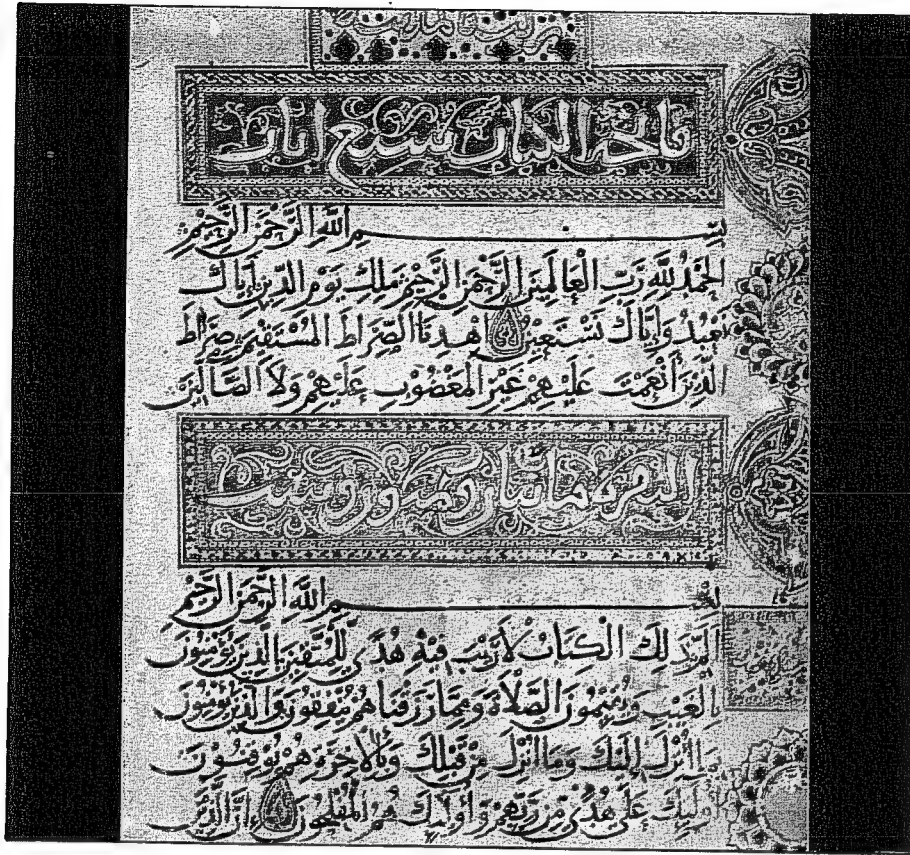 فاتحة الكتاب سبع آيات
بسم الله الرحمن الرحيم
الحمد لله رب العالمين الرحمن الرحيم ملك يوم الدين إياك
نعبد وإياك نستعين اهدنا الصراط المستقيم صراط
الذين أنعمت عليهم غير المغضوب عليهم ولا الضالين
البقرة مائتان وثمانون وست
بسم الله الرحمن الرحيم
الم ذلك الكتاب لا ريب فيه هدى للمتقين الذين يؤمنون
بالغيب ويقيمون الصلاة ومما رزقناهم ينفقون والذين يؤمنون
بما أنزل إليك وما أنزل من قبلك وبالآخرة هم يوقنون
أولئك على هدى من ربهم وأولئك هم المفلحون إن الذين